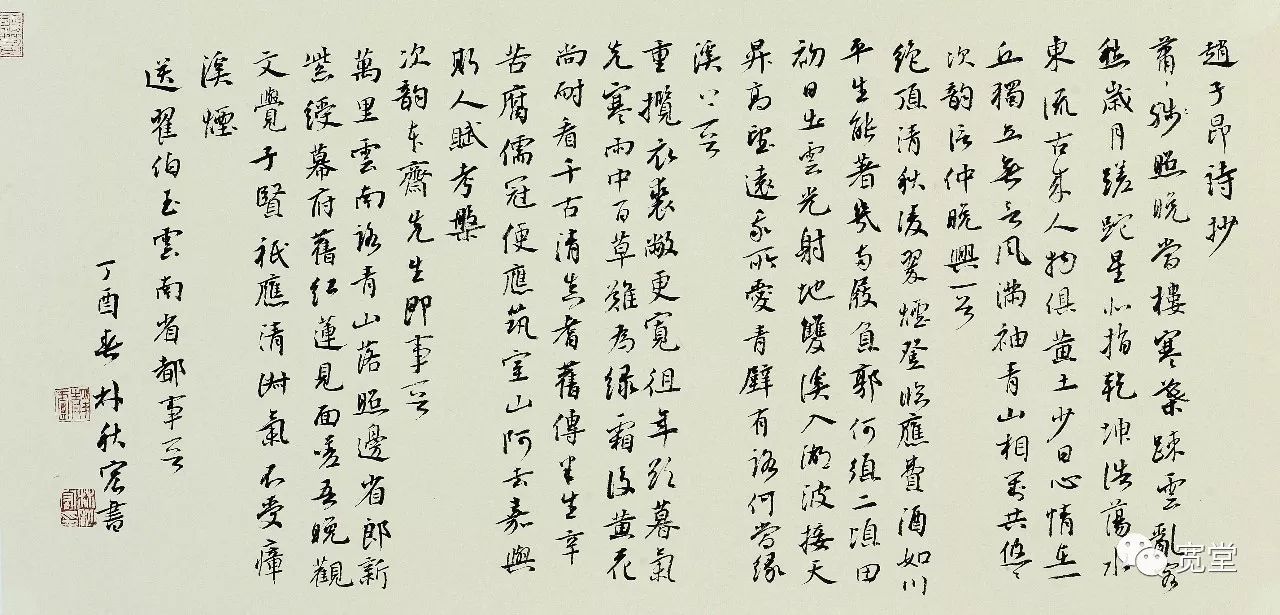 趙子昂詩抄
蕭〻殘照晚當樓寒葉疎雲亂客
愁歲月蹉跎星北指乾坤浩蕩水
東流古來人物俱黃土少日心情在一
丘獨立無言風滿袖青山相對共悠〻
次韵信仲晚興一首
絕頂清秋凌翠煙登臨應費酒如川
平生能著幾兩屐負郭何須二頃田
初日出雲光射地雙溪入湖波接天
昇高望遠我所愛青壁有路何當緣
溪上一首
重攬衣裘敝更寬徂年欲暮氣
先寒雨中百草難為綠霜後黃花
尚耐看千古清真耆舊傳半生辛
苦腐儒冠便應筑室山阿去嘉與
人賦考槃
次韵本齋先生即事一首
萬里雲南路青山落照邊省郎新
紫綬幕府舊紅蓮見面嗟吾晚觀
文覺子賢祇應清淑氣不受瘴
溪煙
送翟伯玉雲南省都事一首
丁酉春林秋宏書
宽堂